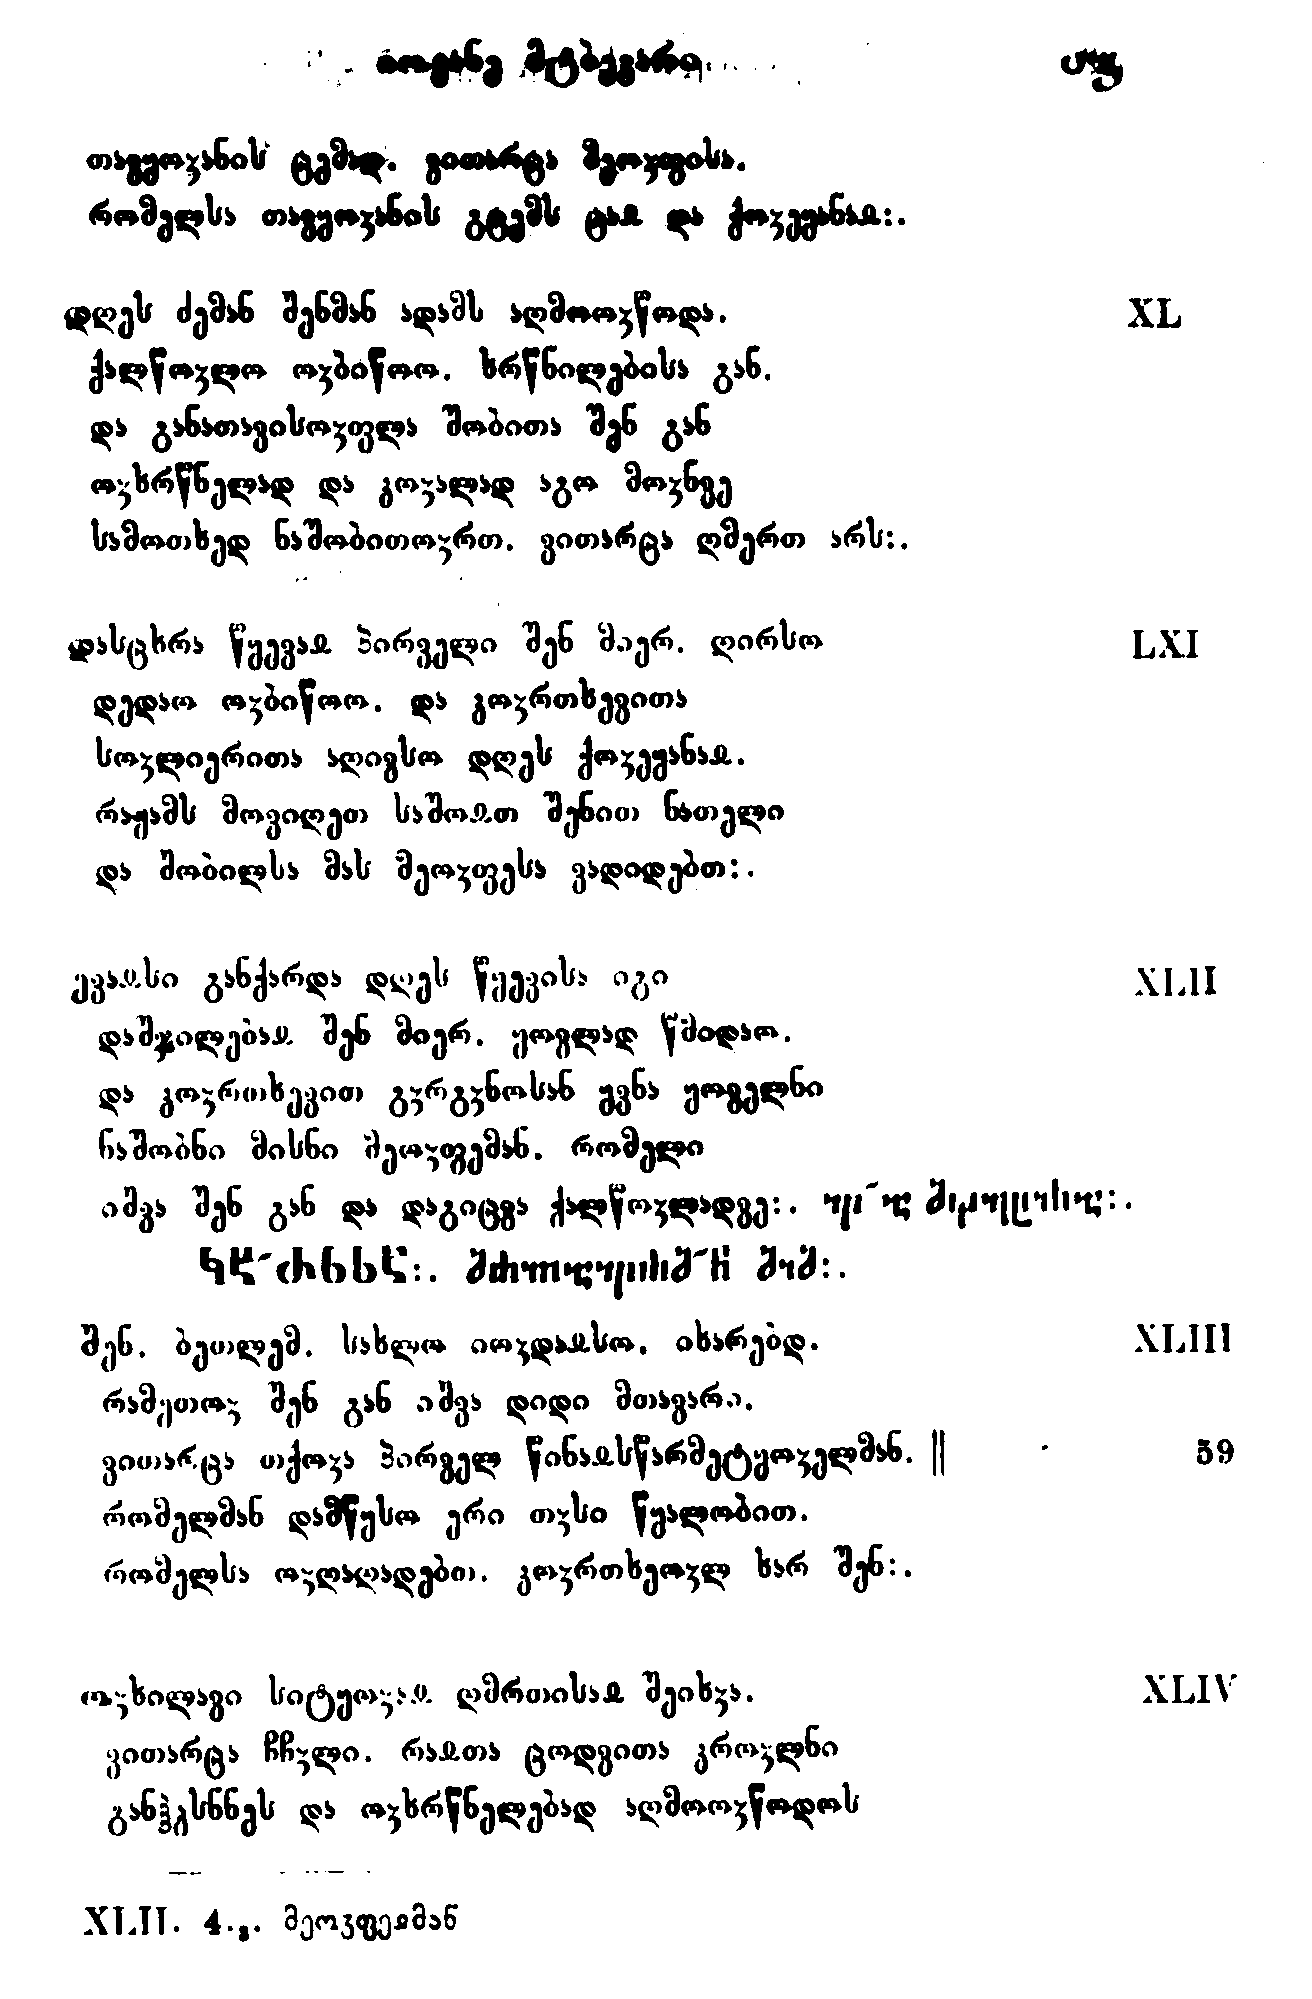 იოვანე მტბევარი
თაყუოჳანის ცემად. ვითარცა მეოჳფისა.
რომელსა თაყუოჳანის გცემს ცაჲ და ქოჳეყანაჲ:.
დღეს ძემან შენმან ადამს აღმოოჳწოდა. XL
ქალწოჳლო ოჳბიწოო. ხრწნილებისა გან.
და განათავისოჳფლა შობითა შენ გან
ოჳხრწნელად და კოჳალად აგო მოჳნვე
სამოთხედ ნაშობითოჳრთ. ვითარცა ღმერთ არს:.
დასცხრა წყევაჲ პირველი შენ მიერ. ღირსო LXI
დედაო ოჳბიწოო. და კოჳრთხევითა
სოჳლიერითა აღივსო დღეს ქოჳეყანაჲ.
რაჟამს მოვიღეთ საშოჲთ შენით ნათელი
და შობილსა მას მეოჳფესა ვადიდებთ:.
ევაჲსი განქარდა დღეს წყევისა იგი XLII
დაშჯილებაჲ შენ მიერ. ყოვლად წმიდაო.
და კოჳრთხევით გჳრგჳნოსან ყვნა ყოველნი
ნაშობნი მისნი მეოჳფემან. რომელი
იშვა შენ გან და დაგიცვა ქალწოჳლადვე:.
შენ. ბეთლემ. სახლო იოჳდაჲსო. იხარებდ. XLIII
რამეთოჳ შენ გან იშვა დიდი მთავარი.
ვითარცა თქოჳა პირველ წინაჲსწარმეტყოჳელმან. || 59
რომელმან დამწესო ერი თჳსი წყალობით.
რომელსა ოჳღაღადებთ. კოჳრთხეოჳლ ხარ შენ:.
ოჳხილავი სიტყოჳაჲ ღმრთისაჲ შეისხჳა. XLIV
ვითარცა ჩჩჳლი. რაჲთა ცოდვითა კროჳლნი
განჴსნნეს და ოჳხრწნელებად აღმოოჳწოდოს
XLII. 4.ვ. მეოჳფეჲმან